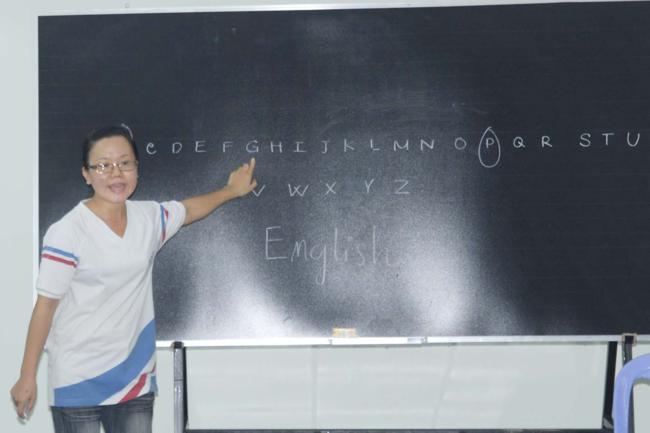 C D E F G H I J K L M N O P Q R S T U
V W X Y Z
English